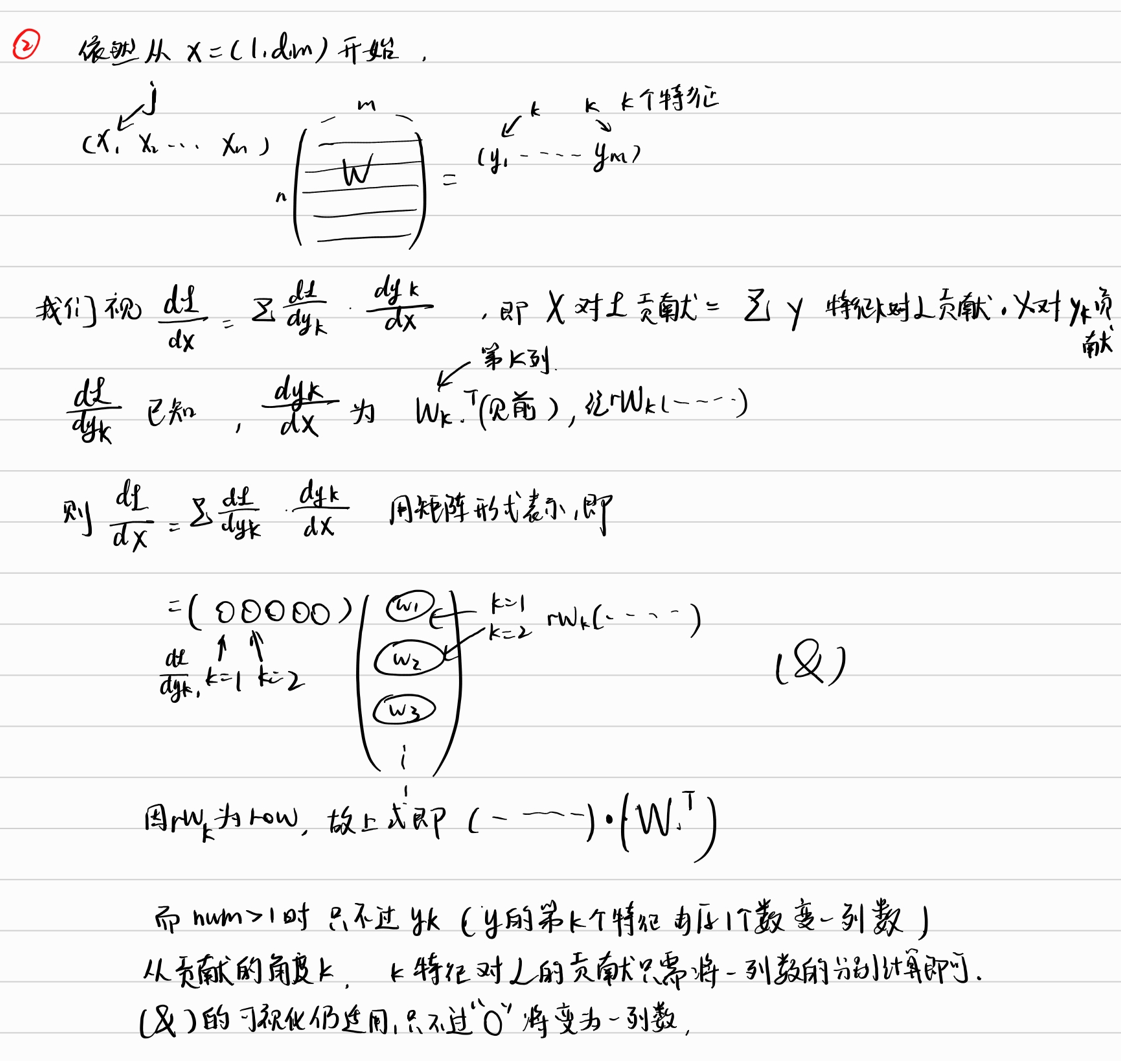 ② 依然从 X=(1,dim) 开始,
j
m
k k k个特征
(x₁ x₂ ... xₙ) n (W) = (y₁ ---- yₘ)
我们视 dL/dx = Σ dL/dyk · dyk/dx , 即 X 对 L 贡献 = Σ y 特征k对L贡献·X对yk贡献
第K列
dL/dyk 已知 , dyk/dx 为 Wk.ᵀ(见前), 记rWk(----)
则 dL/dx = Σ dL/dyk · dyk/dx 用矩阵形式表示,即
=(OOOOO)(w1 w2 w3 ⋮) k=1 k=2 rWk(----)
dL/dyk, k=1 k=2 (&)
因rWk为row, 故上式即 (- ----)·(W.ᵀ)
而 num>1时 只不过 yk (y的第k个特征 由原1个数变一列数)
从贡献的角度k, k特征对L的贡献只需将一列数的分别计算即可.
(&)的可视化仍适用,只不过"O"将变为一列数,